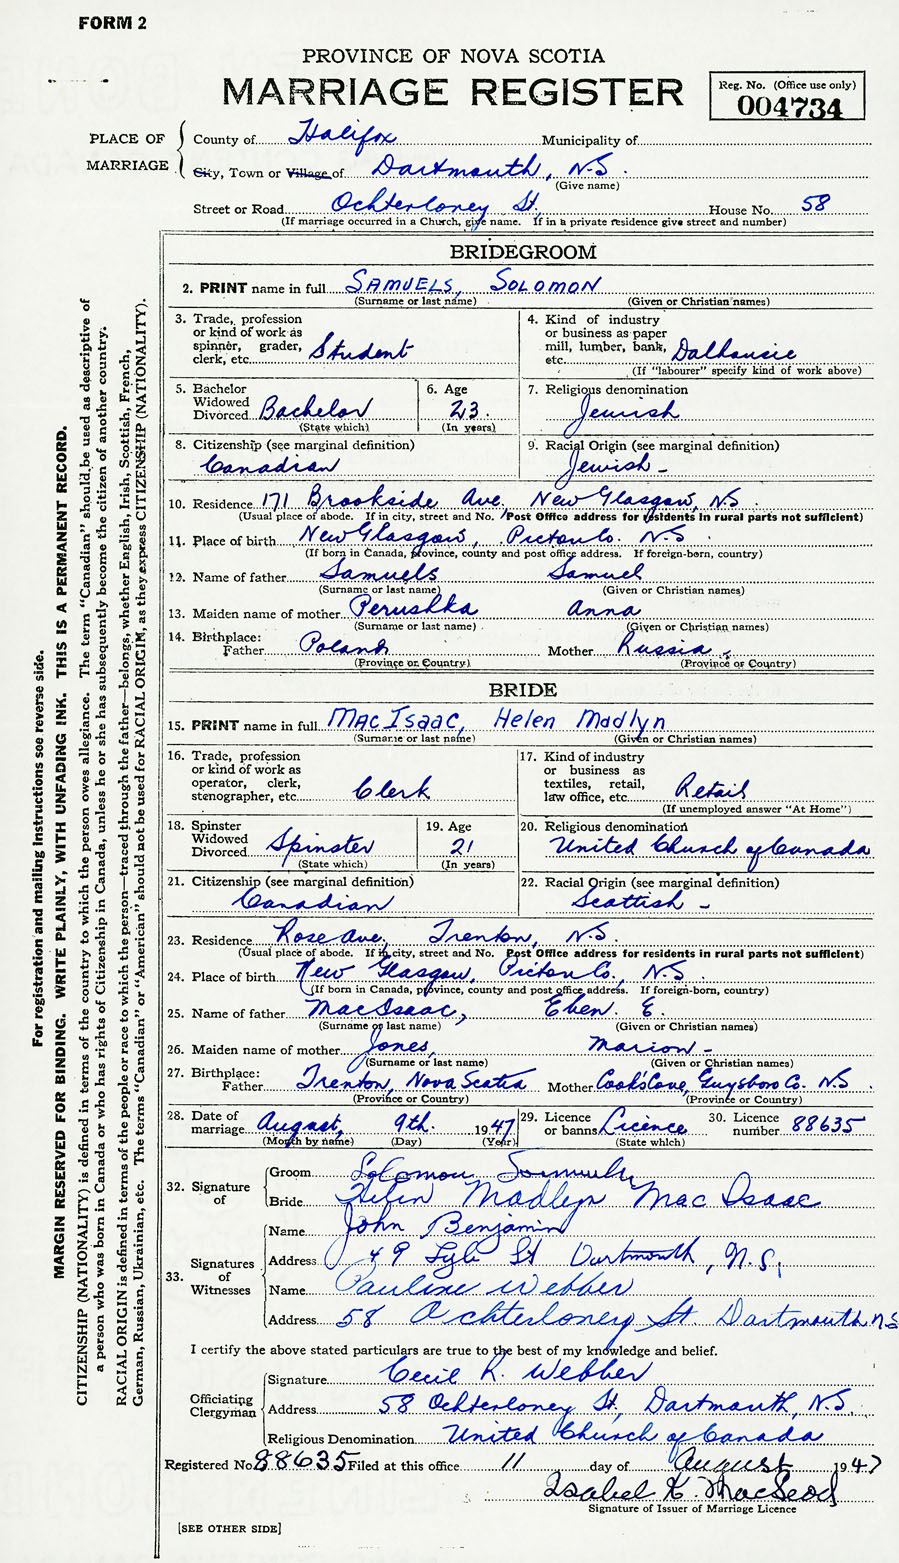 FORM 2
PROVINCE OF NOVA SCOTIA
MARRIAGE REGISTER
Reg. No. (Office use only)
004734
PLACE OF MARRIAGE
County of Halifax Municipality of
City, Town or Village of Dartmouth, N.S.
(Give name)
Street or Road Ochterloney St. House No. 58
(If marriage occurred in a Church, give name. If in a private residence give street and number)
BRIDEGROOM
2. PRINT name in full SAMUELS, SOLOMON
(Surname or last name) (Given or Christian names)
3. Trade, profession or kind of work as spinner, grader, clerk, etc. Student
4. Kind of industry or business as paper mill, lumber, bank, etc. Dalhousie
(If "labourer" specify kind of work above)
5. Bachelor Widowed Divorced Bachelor
(State which)
6. Age 23.
(In years)
7. Religious denomination
Jewish
8. Citizenship (see marginal definition)
Canadian
9. Racial Origin (see marginal definition)
Jewish -
10. Residence 171 Brookside Ave. New Glasgow, NS
(Usual place of abode. If in city, street and No. Post Office address for residents in rural parts not sufficient)
11. Place of birth New Glasgow, Pictou Co. N.S.
(If born in Canada, province, county and post office address. If foreign-born, country)
12. Name of father Samuels Samuel
(Surname or last name) (Given or Christian names)
13. Maiden name of mother Perushka Anna
(Surname or last name) (Given or Christian names)
14. Birthplace:
Father Poland Mother Russia.
(Province or Country) (Province or Country)
BRIDE
15. PRINT name in full MacIsaac, Helen Madlyn
(Surname or last name) (Given or Christian names)
16. Trade, profession or kind of work as operator, clerk, stenographer, etc. Clerk
17. Kind of industry or business as textiles, retail, law office, etc. Retail
(If unemployed answer "At Home")
18. Spinster Widowed Divorced Spinster
(State which)
19. Age 21
(In years)
20. Religious denomination
United Church of Canada
21. Citizenship (see marginal definition)
Canadian
22. Racial Origin (see marginal definition)
Scottish -
23. Residence Rose Ave, Trenton, N.S.
(Usual place of abode. If in city, street and No. Post Office address for residents in rural parts not sufficient)
24. Place of birth New Glasgow, Pictou Co., N.S.
(If born in Canada, province, county and post office address. If foreign-born, country)
25. Name of father MacIsaac, Eben. E.
(Surname or last name) (Given or Christian names)
26. Maiden name of mother Jones, Marion -
(Surname or last name) (Given or Christian names)
27. Birthplace:
Father Trenton, Nova Scotia Mother Cook's Cove, Guysboro Co. N.S.
(Province or Country) (Province or Country)
28. Date of marriage August, 9th. 1947
(Month by name) (Day) (Year)
29. Licence or banns Licence
(State which)
30. Licence number 88635
32. Signature of
Groom Solomon Samuels
Bride Helen Madlyn Mac Isaac
33. Signatures of Witnesses
Name John Benjamin
Address 49 Lyle St Dartmouth, N.S.
Name Pauline Webber
Address 58 Ochterloney St. Dartmouth N.S
I certify the above stated particulars are true to the best of my knowledge and belief.
Officiating Clergyman
Signature Cecil R. Webber
Address 58 Ochterloney St., Dartmouth, N.S.
Religious Denomination United Church of Canada
Registered No. 88635 Filed at this office 11 day of August 1947
Isabel K. MacLeod
Signature of Issuer of Marriage Licence
[SEE OTHER SIDE]
For registration and mailing instructions see reverse side.
MARGIN RESERVED FOR BINDING. WRITE PLAINLY, WITH UNFADING INK. THIS IS A PERMANENT RECORD.
CITIZENSHIP (NATIONALITY) is defined in terms of the country to which the person owes allegiance. The term "Canadian" should be used as descriptive of
a person who was born in Canada or who has rights of Citizenship in Canada, unless he or she has subsequently become the citizen of another country.
RACIAL ORIGIN is defined in terms of the people or race to which the person—traced through the father—belongs, whether English, Irish, Scottish, French,
German, Russian, Ukrainian, etc. The terms "Canadian" or "American" should not be used for RACIAL ORIGIN, as they express CITIZENSHIP (NATIONALITY).